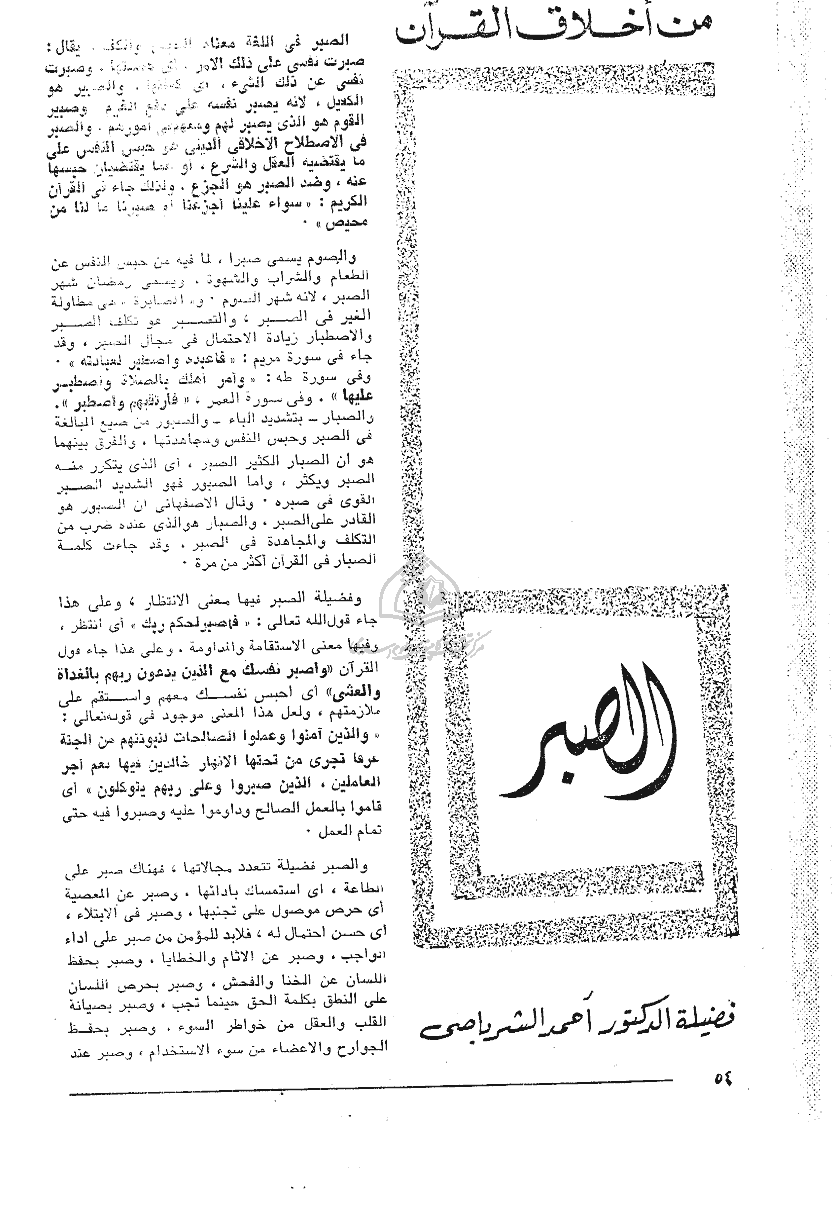 من أخلاق القرآن
الصبر
فضيلة الدكتور أحمد الشرباصى
الصبر فى اللغة معناه الحبس والكف ، يقال :
صبرت نفسى على ذلك الامر ، أى حبستها ، وصبرت
نفسى عن ذلك الشىء ، أى كففتها ، والصبير هو
الكفيل ، لانه يصبر نفسه على دفع الغرم وصبير
القوم هو الذى يصبر لهم ومعهم فى أمورهم . والصبر
فى الاصطلاح الاخلاقى الدينى هو حبس النفس على
ما يقتضيه العقل والشرع ، أو عما يقتضيان حبسها
عنه ، وضد الصبر هو الجزع ، ولذلك جاء فى القرآن
الكريم : « سواء علينا أجزعنا أم صبرنا ما لنا من
محيص » .
والصوم يسمى صبرا ، لما فيه من حبس النفس عن
الطعام والشراب والشهوة ، ويسمى رمضان شهر
الصبر ، لانه شهر الصوم . والمصابرة هى مطاولة
الغير فى الصبر ، والتصبر هو تكلف الصبر
والاصطبار زيادة الاحتمال فى مجال الصبر ، وقد
جاء فى سورة مريم : « فاعبده واصطبر لعبادته » .
وفى سورة طه : « وأمر أهلك بالصلاة واصطبر
عليها » . وفى سورة القمر ، « فارتقبهم واصطبر » .
والصبار - بتشديد الباء - والصبور من صيغ المبالغة
فى الصبر وحبس النفس ومجاهدتها ، والفرق بينهما
هو أن الصبار الكثير الصبر ، أى الذى يتكرر منه
الصبر ويكثر ، وأما الصبور فهو الشديد الصبر
القوى فى صبره . وقال الاصفهانى ان الصبور هو
القادر على الصبر ، والصبار هو الذى عنده ضرب من
التكلف والمجاهدة فى الصبر ، وقد جاءت كلمة
الصبار فى القرآن أكثر من مرة .
وفضيلة الصبر فيها معنى الانتظار ، وعلى هذا
جاء قول الله تعالى : « فاصبر لحكم ربك » أى انتظر ،
وفيها معنى الاستقامة والمداومة ، وعلى هذا جاء قول
القرآن «واصبر نفسك مع الذين يدعون ربهم بالغداة
والعشى» أى احبس نفسك معهم واستقم على
ملازمتهم ، ولعل هذا المعنى موجود فى قوله تعالى :
« والذين آمنوا وعملوا الصالحات لنبوئنهم من الجنة
غرفا تجرى من تحتها الانهار خالدين فيها نعم أجر
العاملين ، الذين صبروا وعلى ربهم يتوكلون » أى
قاموا بالعمل الصالح وداوموا عليه وصبروا فيه حتى
تمام العمل .
والصبر فضيلة تتعدد مجالاتها ، فهناك صبر على
الطاعة ، أى استمساك بأدائها ، وصبر عن المعصية
أى حرص موصول على تجنبها ، وصبر فى الابتلاء ،
أى حسن احتمال له ، فلابد للمؤمن من صبر على أداء
الواجب ، وصبر عن الاثام والخطايا ، وصبر بحفظ
اللسان عن الخنا والفحش ، وصبر بحرص اللسان
على النطق بكلمة الحق حينما تجب ، وصبر بصيانة
القلب والعقل من خواطر السوء . وصبر بحفظ
الجوارح والاعضاء من سوء الاستخدام ، وصبر عند
٥٤